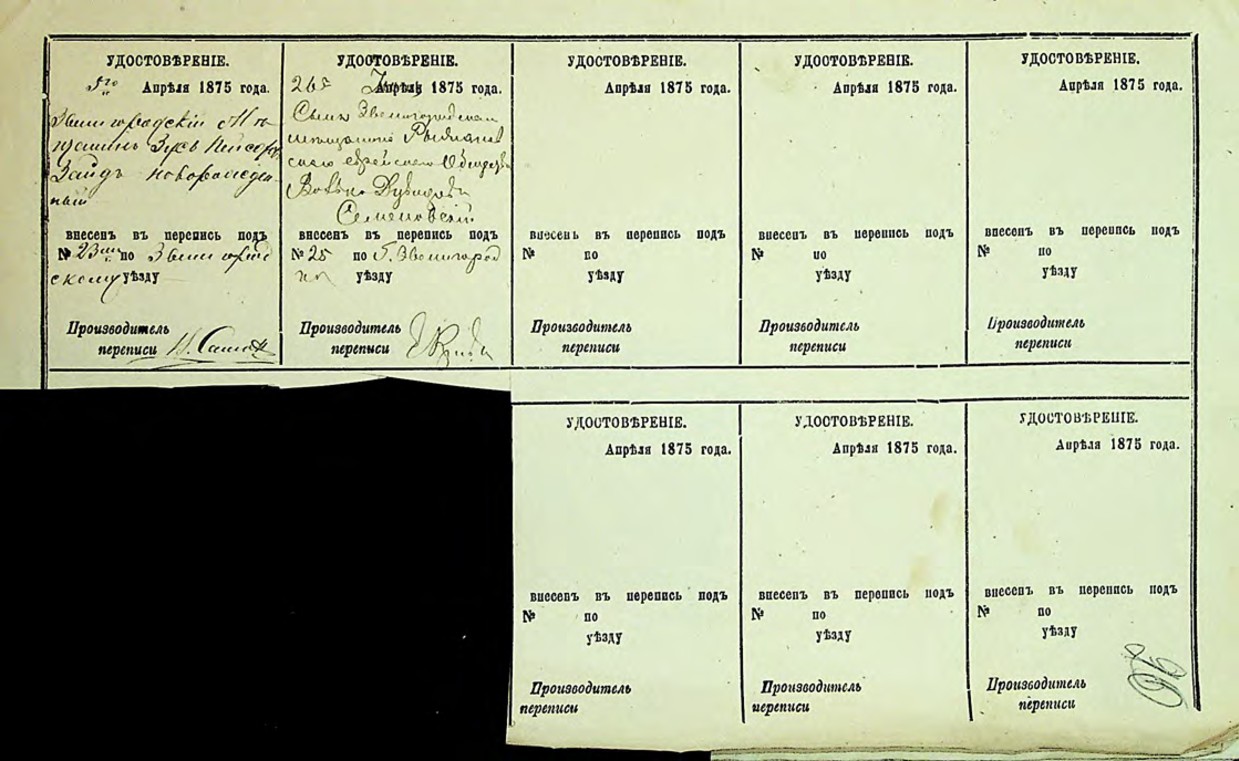 УДОСТОВѢРЕНІЕ.
5го Апрѣля 1875 года.
Звенигородскій Мѣ-
щанинъ
Зайдъ новорожден-
ный
внесенъ въ перепись подъ
№ 23 по Звенигород
скому уѣзду
Производитель
переписи
УДОСТОВѢРЕНІЕ.
26 1875 года.
Сынъ Звенигородскаго
мѣщанина
скаго еврейскаго Общества
Семеновскій
внесенъ въ перепись подъ
№ 25 по Г. Звенигород
уѣзду
Производитель
переписи
УДОСТОВѢРЕНІЕ.
Апрѣля 1875 года.
внесенъ въ перепись подъ
№ по
уѣзду
Производитель
переписи
УДОСТОВѢРЕНІЕ.
Апрѣля 1875 года.
внесенъ въ перепись подъ
№ по
уѣзду
Производитель
переписи
УДОСТОВѢРЕНІЕ.
Апрѣля 1875 года.
внесенъ въ перепись подъ
№ по
уѣзду
Производитель
переписи
УДОСТОВѢРЕНІЕ.
Апрѣля 1875 года.
внесенъ въ перепись подъ
№ по
уѣзду
Производитель
переписи
УДОСТОВѢРЕНІЕ.
Апрѣля 1875 года.
внесенъ въ перепись подъ
№ по
уѣзду
Производитель
переписи
УДОСТОВѢРЕНІЕ.
Апрѣля 1875 года.
внесенъ въ перепись подъ
№ по
уѣзду
Производитель
переписи